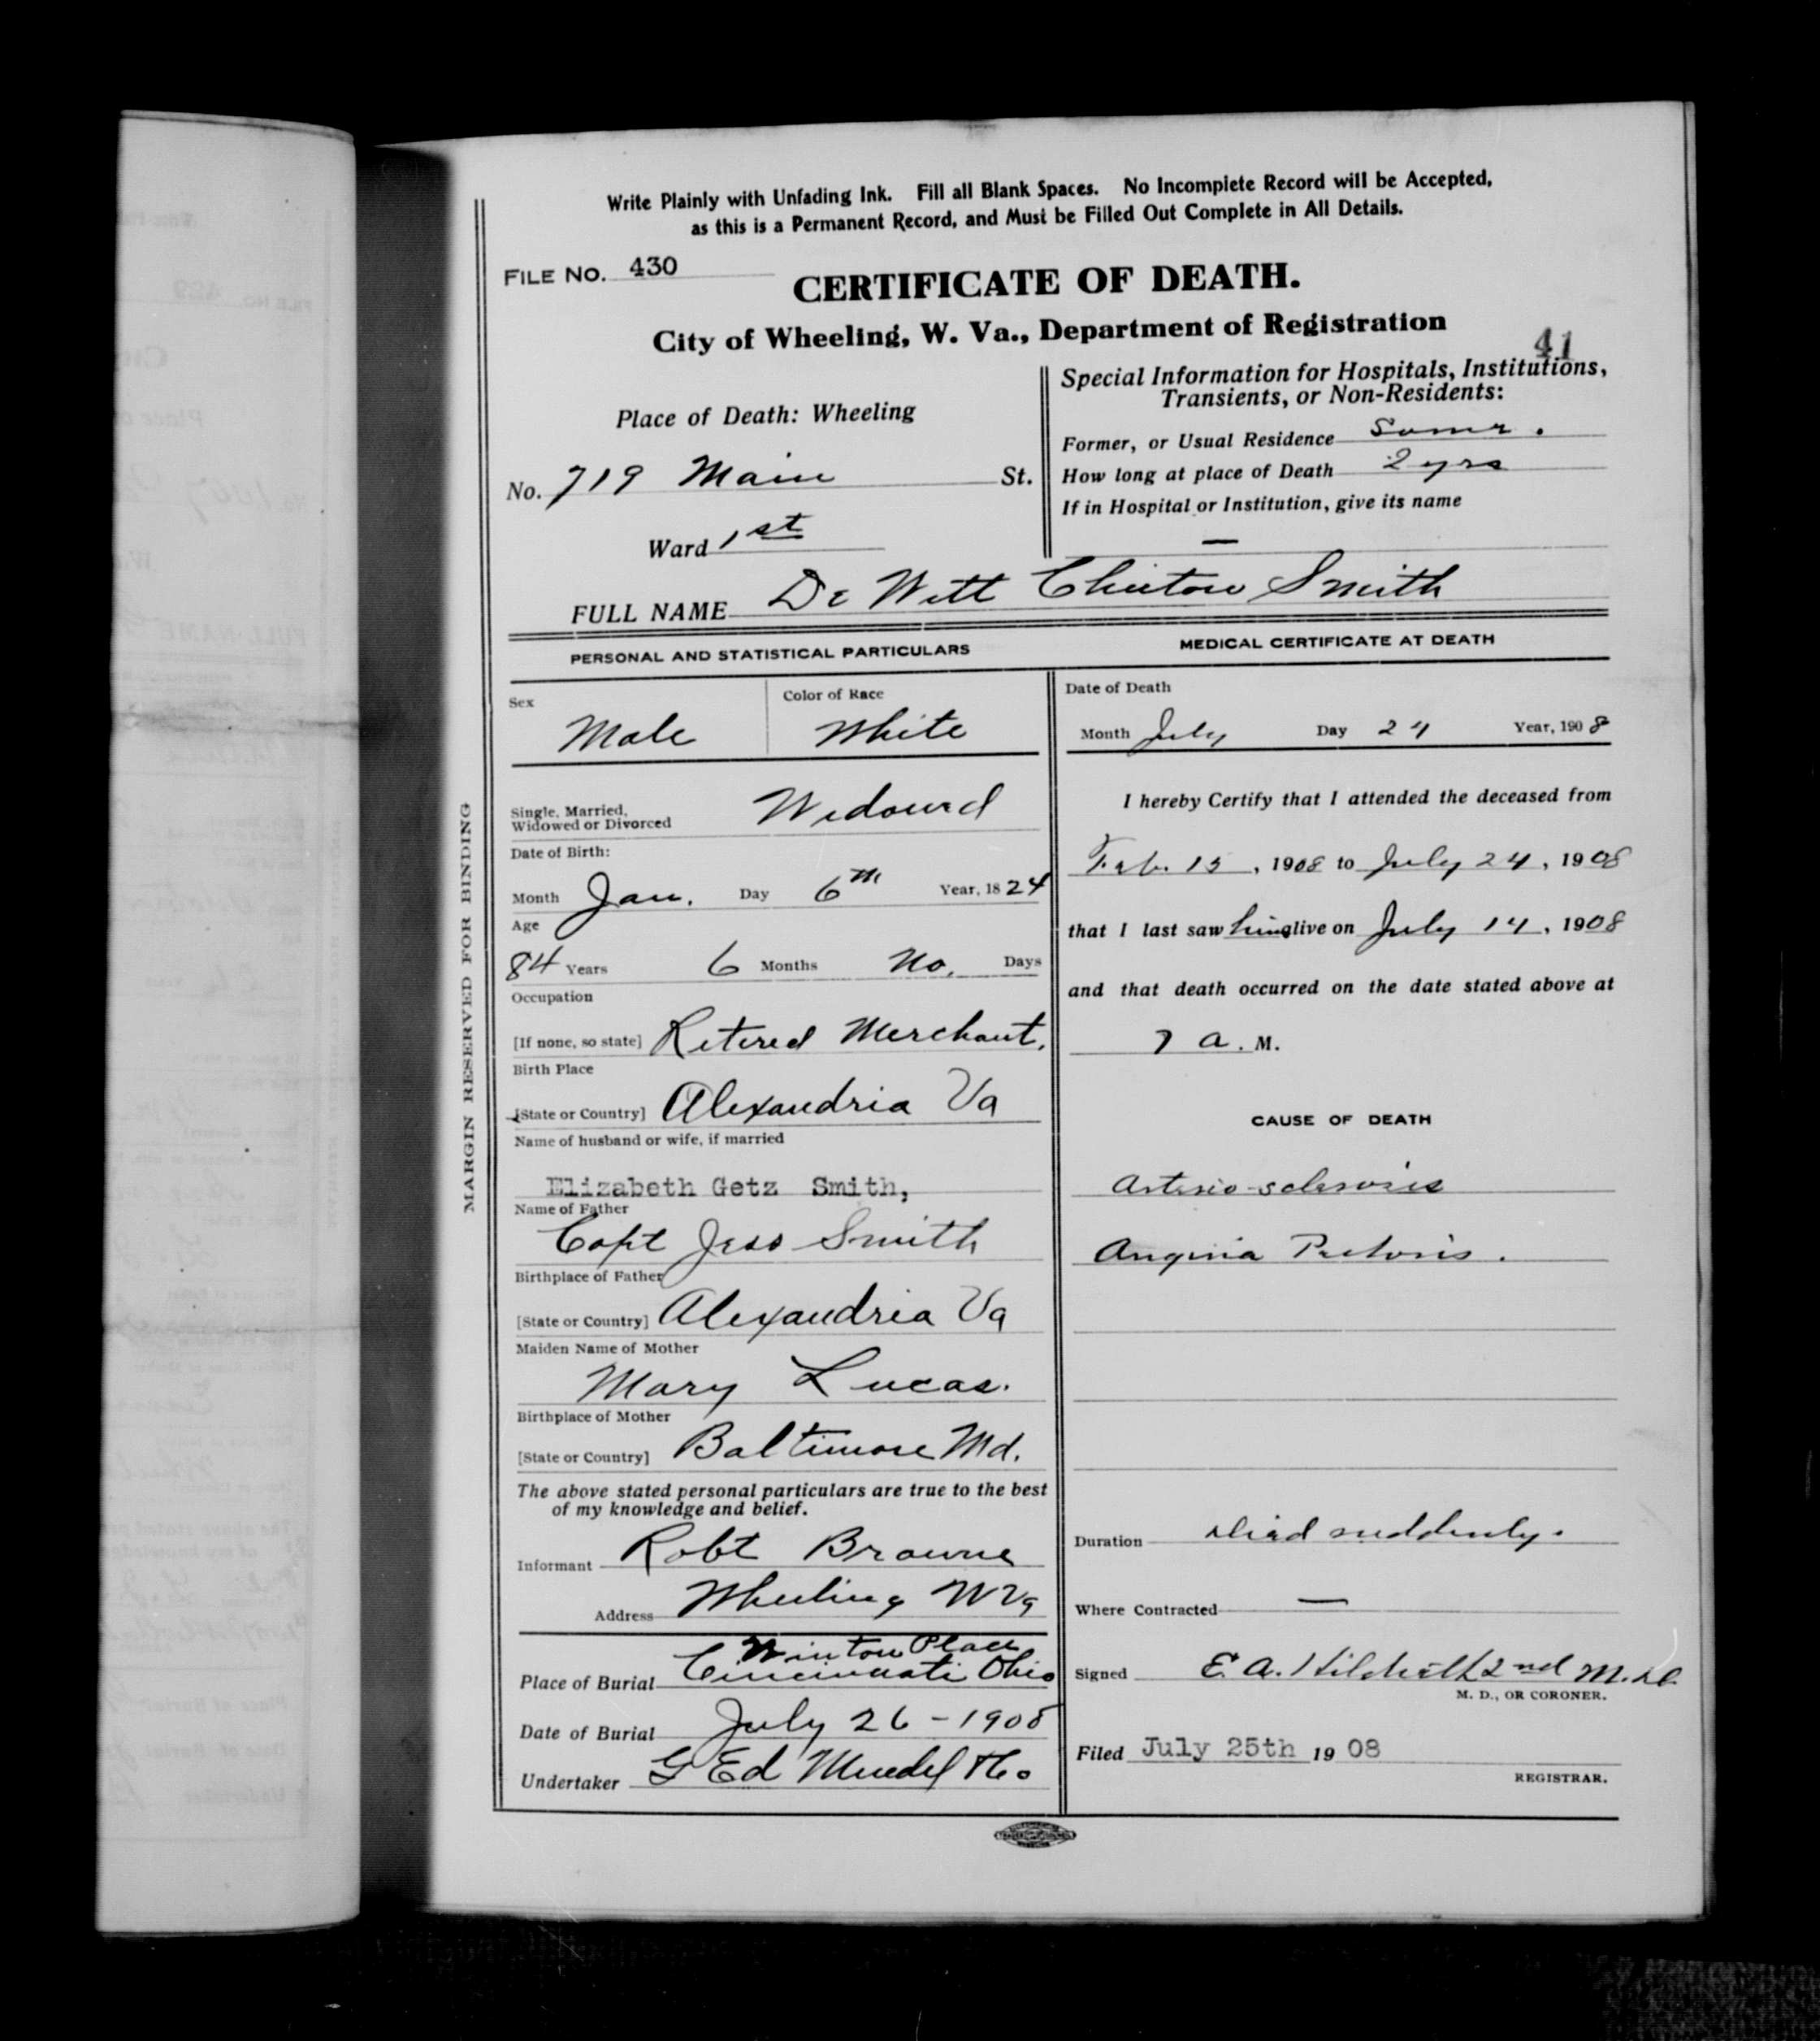 Write Plainly with Unfading Ink. Fill all Blank Spaces. No Incomplete Record will be Accepted,
as this is a Permanent Record, and Must be Filled Out Complete in All Details.
FILE NO. 430
CERTIFICATE OF DEATH.
City of Wheeling, W. Va., Department of Registration
41
Place of Death: Wheeling
No. 719 Main St.
Ward 1st
Special Information for Hospitals, Institutions,
Transients, or Non-Residents:
Former, or Usual Residence Same.
How long at place of Death 2 yrs
If in Hospital or Institution, give its name
—
FULL NAME De Witt Clinton Smith
PERSONAL AND STATISTICAL PARTICULARS
Sex
Male
Color of Race
White
Single, Married,
Widowed or Divorced Widowed
Date of Birth:
Month Jan. Day 6th Year, 1824
Age
84 Years 6 Months No. Days
Occupation
[If none, so state] Retired Merchant.
Birth Place
[State or Country] Alexandria Va
Name of husband or wife, if married
Elizabeth Getz Smith,
Name of Father
Capt Jess Smith
Birthplace of Father
[State or Country] Alexandria Va
Maiden Name of Mother
Mary Lucas.
Birthplace of Mother
[State or Country] Baltimore Md.
The above stated personal particulars are true to the best
of my knowledge and belief.
Informant Robt Browne
Address Wheeling W Va
Winton Place
Place of Burial Cincinnati Ohio
Date of Burial July 26 - 1908
Undertaker G Ed Mendel & Co
MEDICAL CERTIFICATE AT DEATH
Date of Death
Month July Day 24 Year, 1908
I hereby Certify that I attended the deceased from
Feb. 15, 1908 to July 24, 1908
that I last saw him alive on July 14, 1908
and that death occurred on the date stated above at
7 a. M.
CAUSE OF DEATH
Arterio-sclerosis
Angina Pectoris.
Duration died suddenly.
Where Contracted —
Signed E. A. Hildreth 2nd M.D.
M. D., OR CORONER.
Filed July 25th 1908
REGISTRAR.
MARGIN RESERVED FOR BINDING